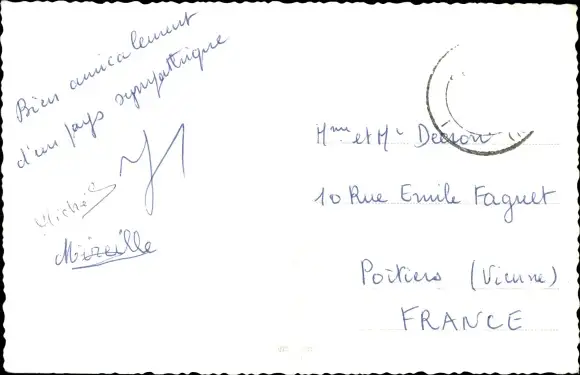 Bien amicalement
d'un pays sympathique
Mireille
Mme et Mr
10 Rue Emile Faguet
Poitiers (Vienne)
FRANCE